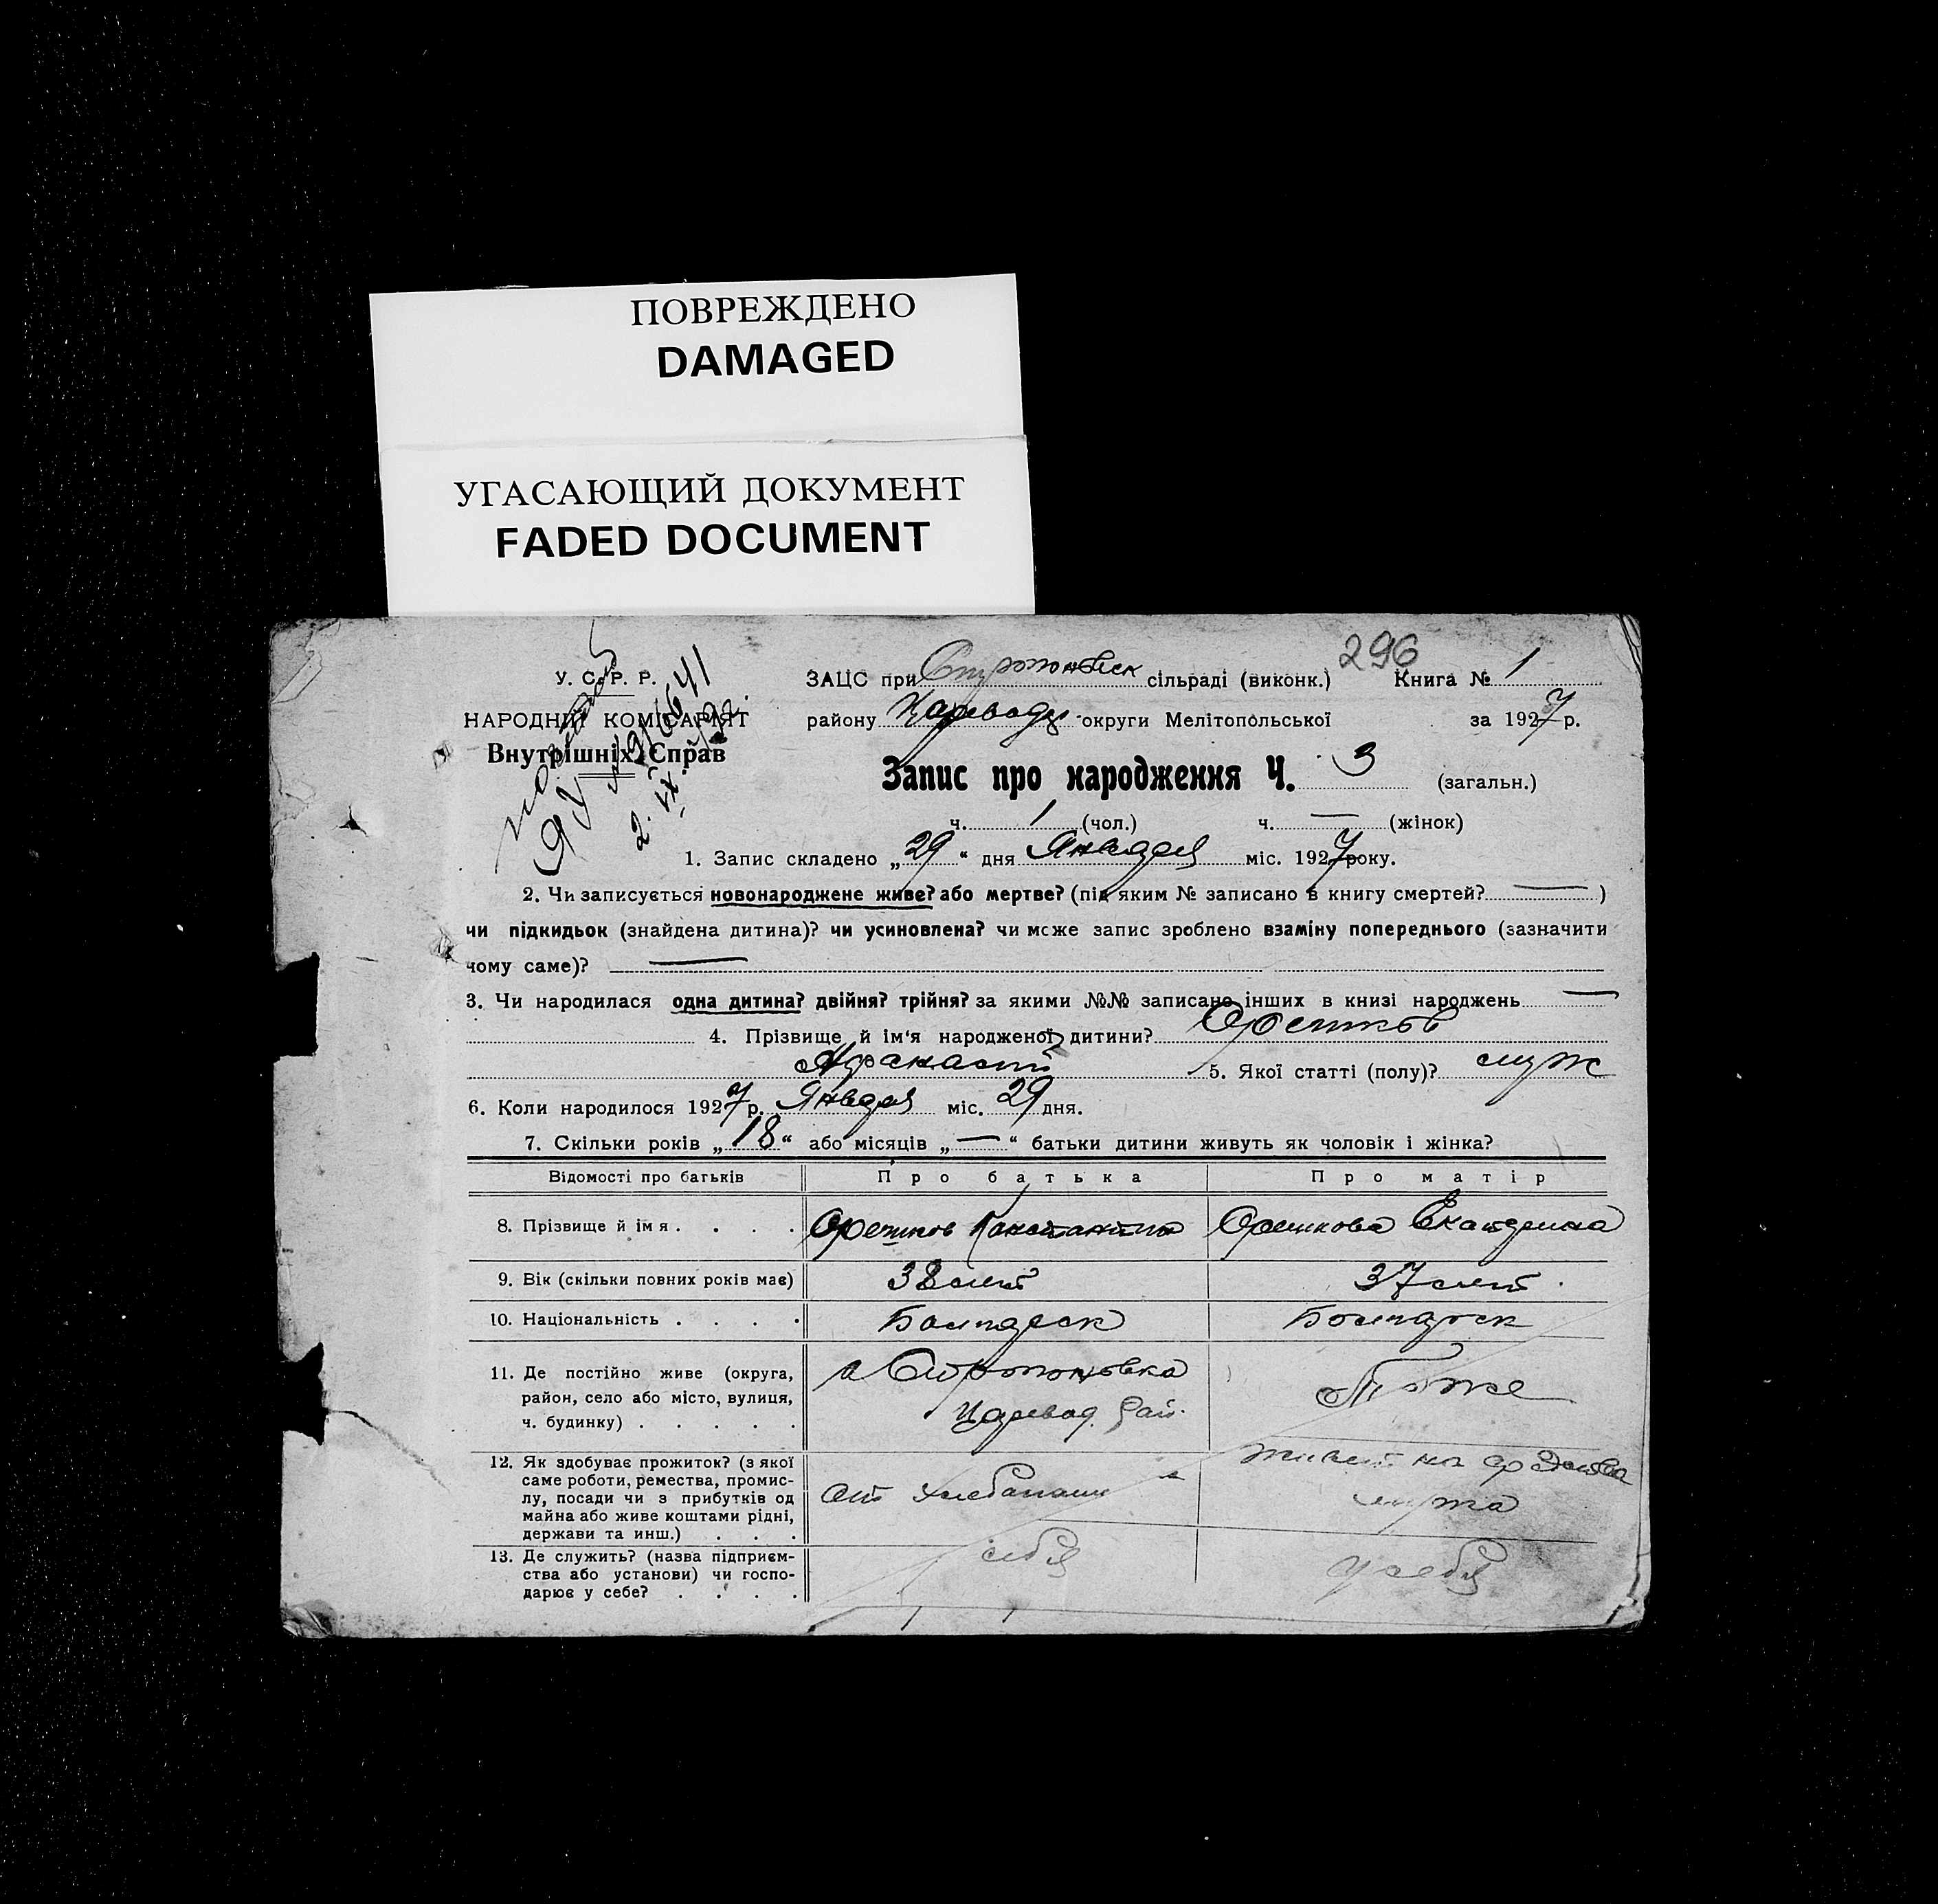 ПОВРЕЖДЕНО
DAMAGED
УГАСАЮЩИЙ ДОКУМЕНТ
FADED DOCUMENT
296
У. С. Р. Р.
НАРОДНИЙ КОМІСАРІЯТ
Внутрішніх Справ
ЗАЦС при сільраді (виконк.) Книга № 1
району Царевод. округи Мелітопольської за 1927 р.
Запис про народження Ч. 3 (загальн.)
ч. 1 (чол.) ч. — (жінок)
1. Запис складено „29“ дня Января міс. 1927 року.
2. Чи записується новонароджене живе? або мертве? (під яким № записано в книгу смертей? — )
чи підкидьок (знайдена дитина)? чи усиновлена? чи може запис зроблено взаміну попереднього (зазначити
чому саме)? —
3. Чи народилася одна дитина? двійня? трійня? за якими №№ записано інших в книзі народжень —
4. Прізвище й ім‘я народженої дитини? Орешков
Афанасий 5. Якої статті (полу)? муж
6. Коли народилося 1927 р. Января міс. 29 дня.
7. Скільки років „18“ або місяців „—“ батьки дитини живуть як чоловік і жінка?
Відомості про батьків Про батька Про матір
8. Прізвище й імя . . . . Орешков Константин Орешкова Екатерина
9. Вік (скільки повних років має) 38 лет 37 лет.
10. Національність . . . . Болгарск Болгарск
11. Де постійно живе (округа,
район, село або місто, вулиця,
ч. будинку) . . . . .
Царевод. рай.
Тоже
12. Як здобуває прожиток? (з якої
саме роботи, ремества, промис-
лу, посади чи з прибутків од
майна або живе коштами рідні,
держави та инш.) . . .
от хлебопаш
живет на средства
мужа
13. Де служить? (назва підприєм-
ства або установи) чи госпо-
дарює у себе? . . . .
себя
у себя